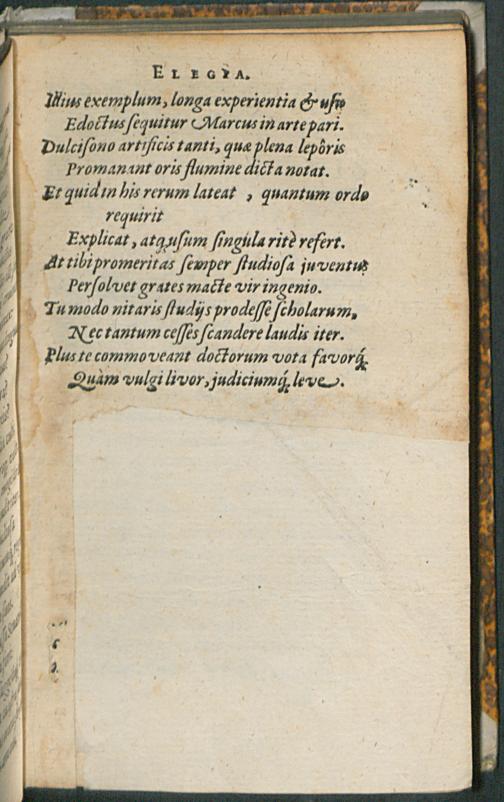 ELEGIA.
Illius exemplum, longa experientia & usus
Edoctus sequitur Marcus in arte pari.
Dulcisono artificis tanti, quæ plena lepôris
Promanant oris flumine dicta notat.
Et quid in his rerum lateat , quantum ordo
requirit
Explicat, atq; usum singula ritè refert.
At tibi promeritas semper studiosa juventus
Persolvet grates macte vir ingenio.
Tu modo nitaris studijs prodesse scholarum,
Nec tantum cesses scandere laudis iter.
Plus te commoveant doctorum vota favorq́;
Quàm vulgi livor, judiciumq́; leve.